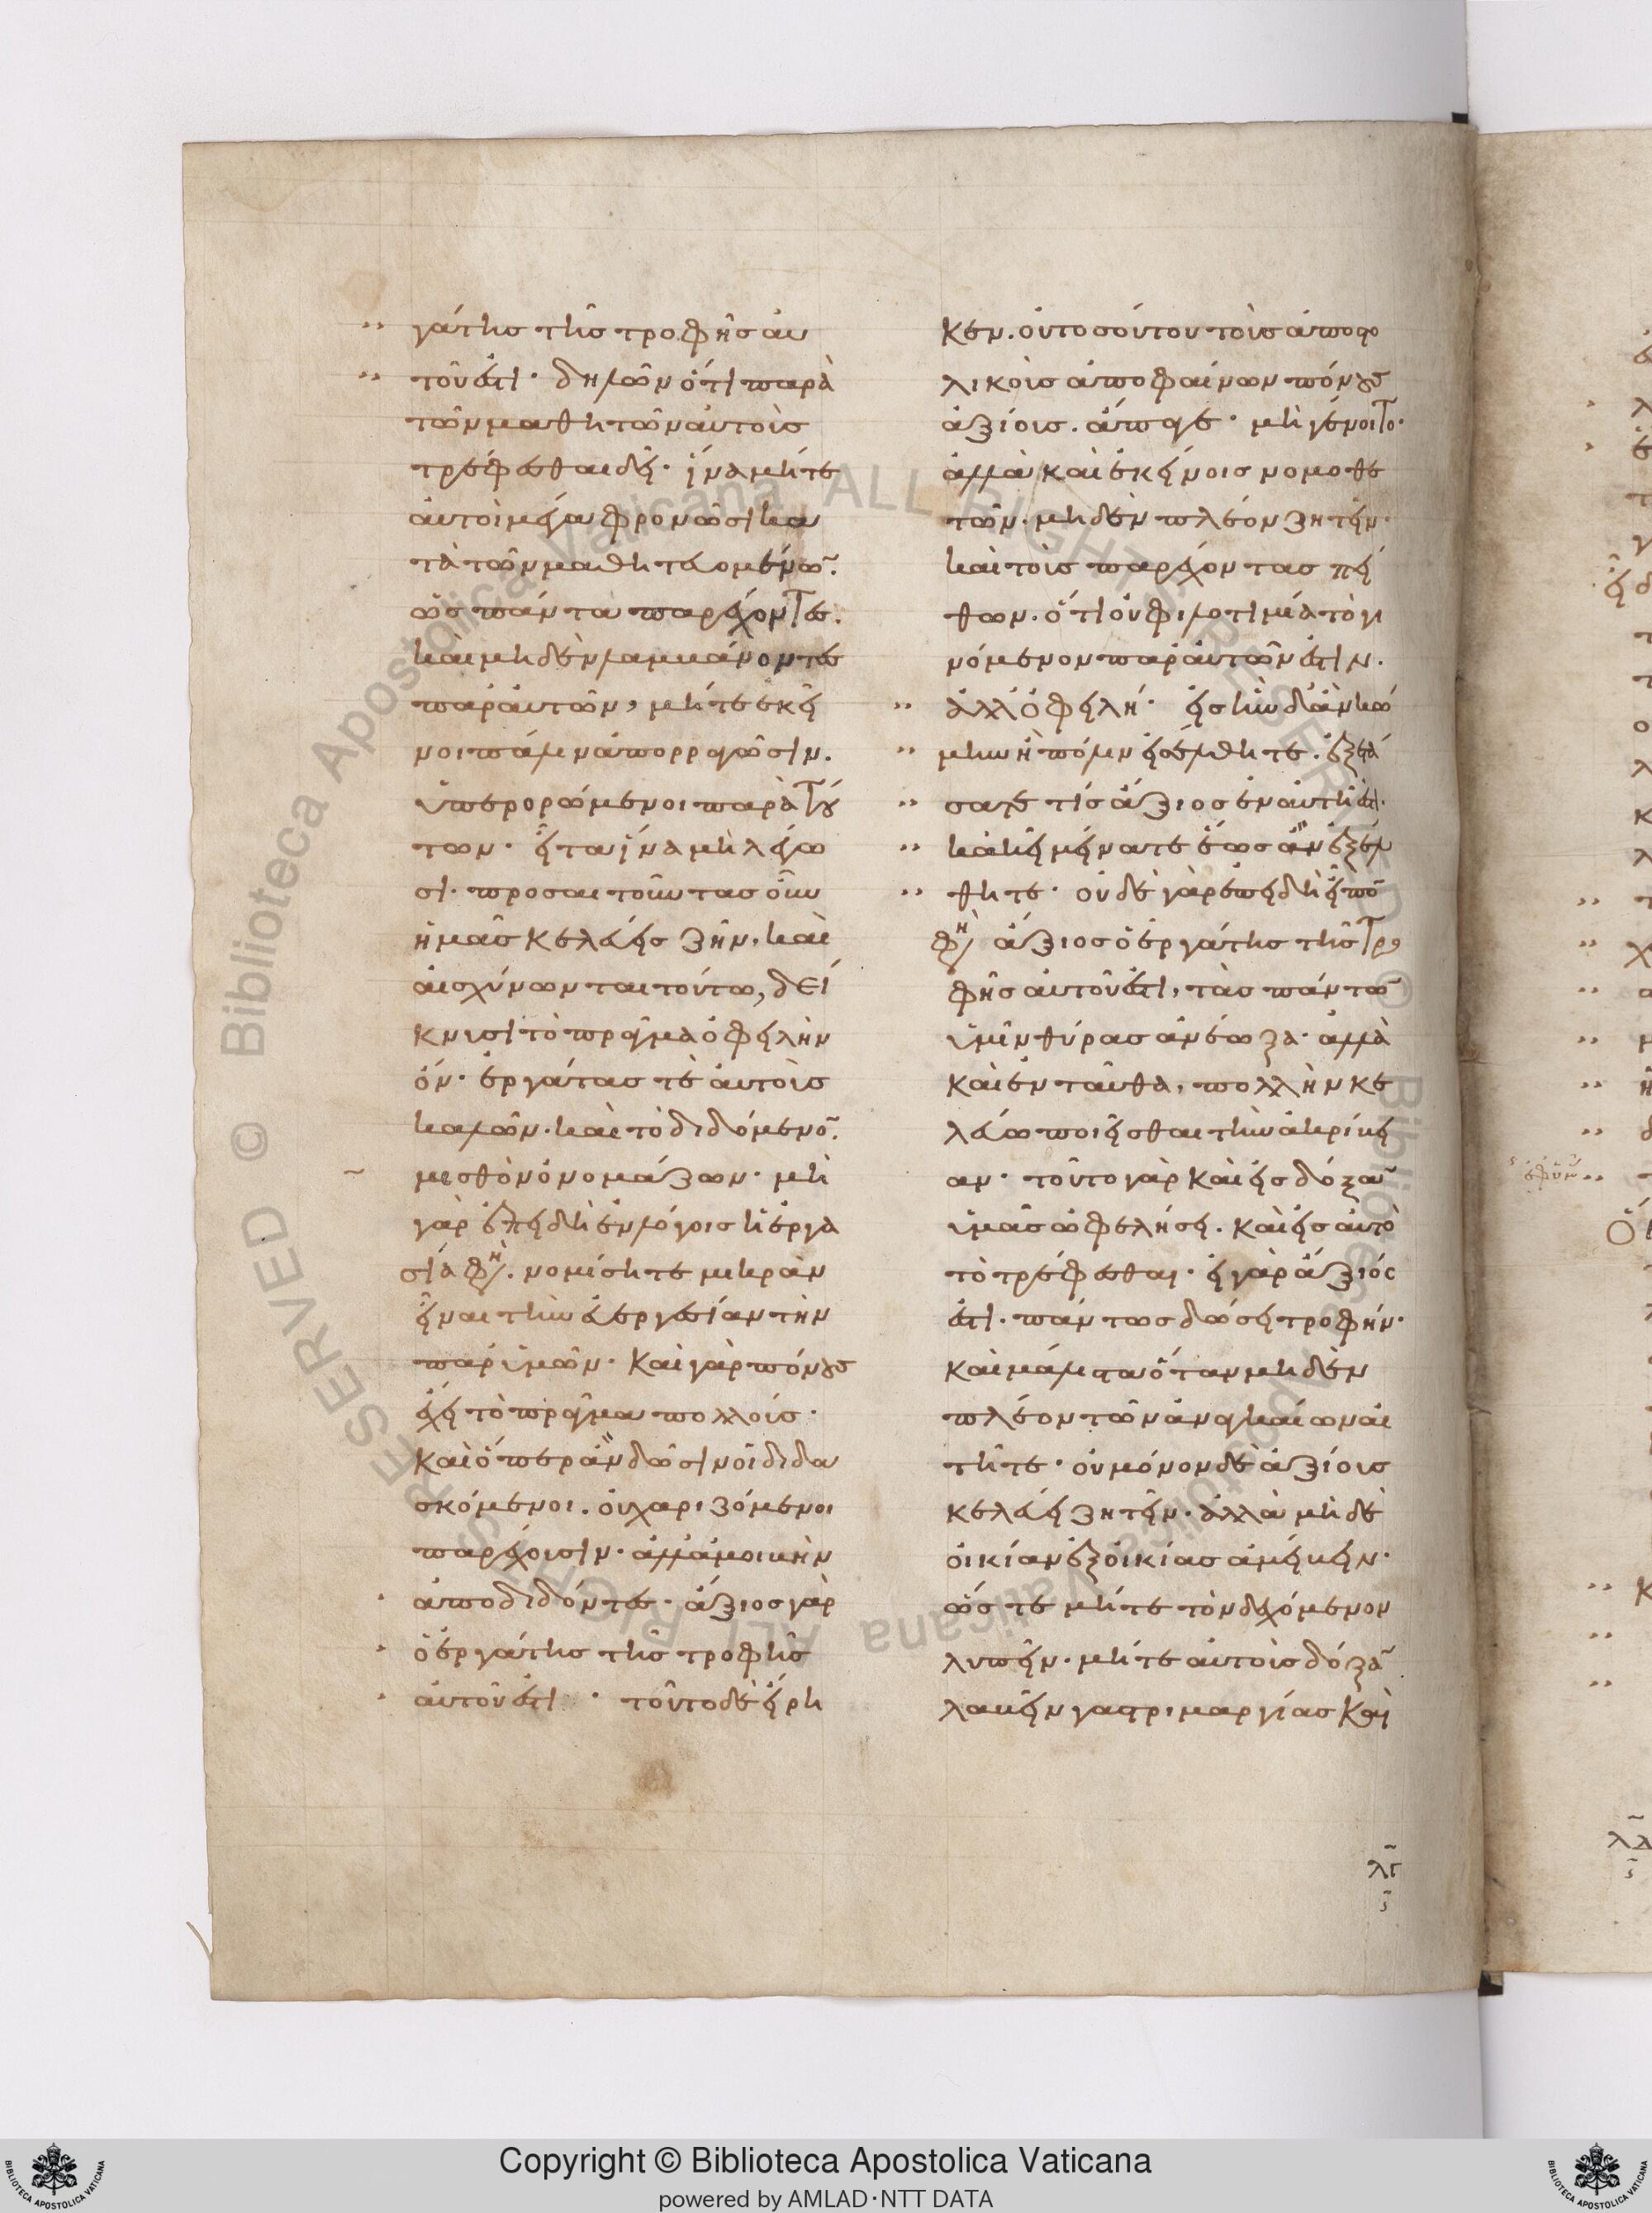 γάτης τῆς τροφῆς αὐ
τοῦ ἐστι· δηλῶν ὅτι παρὰ
τῶν μαθητῶν αὐτοὺς
τρέφεσθαι δεῖ· ἵνα μήτε
αὐτοὶ μέγα φρονῶσι κα
τὰ τῶν μαθητευομένων.
ὡς πάντα παρέχοντες.
καὶ μηδὲν λαμβάνοντες
παρ' αὐτῶν, μήτε ἐκεῖ
νοι πάλιν ἀπορραγῶσιν.
ὑπερορώμενοι παρὰ τού
των· εἶτα ἵνα μὴ λέγω
σι· προσαιτοῦντας οὖν
ἡμᾶς κελεύεις ζῆν, καὶ
αἰσχύνωνται τούτω, δεί
κνυσι τὸ πρᾶγμα ὀφειλὴν
ὄν· ἐργάτας τε αὐτοὺς
καλῶν· καὶ τὸ διδόμενον.
μισθὸν ὀνομάζων· μὴ
γὰρ ἐπειδὴ ἐν λόγοις ἡ ἐργα
σία φη. νομίσητε μικρὰν
εἶναι τὴν εὐεργεσίαν τὴν
παρ' ὑμῶν· καὶ γὰρ πόνους
ἔχει τὸ πρᾶγμα πολλούς·
καὶ ὅπερ ἂν δῶσιν οἱ διδα
σκόμενοι. οὐ χαριζόμενοι
παρέχουσιν· ἀλλ' ἀμοιβὴν
ἀποδιδόντες· ἄξιος γὰρ
ὁ ἐργάτης τῆς τροφῆς
αὐτοῦ ἐστι· τοῦτο δὲ εἴρη
κεν. οὐ τοσούτου τοὺς ἀποστο
λικοὺς ἀποφαίνων πόνους
ἀξίους. ἄπαγε· μὴ γένοιτο·
ἀλλὰ καὶ ἐκείνοις νομοθε
τῶν· μηδὲν πλέον ζητεῖν·
καὶ τοὺς παρέχοντας πεί
θων. ὅτι οὐ φιλοτιμία τὸ γι
νόμενον παρ' αὐτῶν ἐστιν.
ἀλλ' ὀφειλή· εἰς ἣν δ' ἂν κώ
μην ἢ πόλιν εἰσέλθητε. ἐξετά
σατε τίς ἄξιος ἐν αὐτῇ ἐστι.
κἀκεῖ μείνατε ἕως ἂν ἐξέλ
θητε· οὐδὲ γὰρ ἐπειδὴ εἶπον
φη ἄξιος ὁ ἐργάτης τῆς τρο
φῆς αὐτοῦ ἐστι, τὰς πάντων
ὑμῖν θύρας ἀνέωξα· ἀλλὰ
καὶ ἐνταῦθα, πολλὴν κε
λεύω ποιεῖσθαι τὴν ἀκρίβει
αν· τοῦτο γὰρ καὶ εἰς δόξαν
ὑμᾶς ὠφελήσει. καὶ εἰς αὐτὸ
τὸ τρέφεσθαι· εἰ γὰρ ἄξιός
ἐστι. πάντως δώσει τροφήν·
καὶ μάλιστα ὅταν μηδὲν
πλέον τῶν ἀναγκαίων αἰ
τῆτε· οὐ μόνον δὲ ἀξίους
κελεύει ζητεῖν· ἀλλὰ μηδὲ
οἰκίαν ἐξ οἰκίας ἀμείβειν·
ὥστε μήτε τὸν δεχόμενον
λυπεῖν· μήτε αὐτοὺς δόξαν
λαβεῖν γαστριμαργίας καὶ
λγ